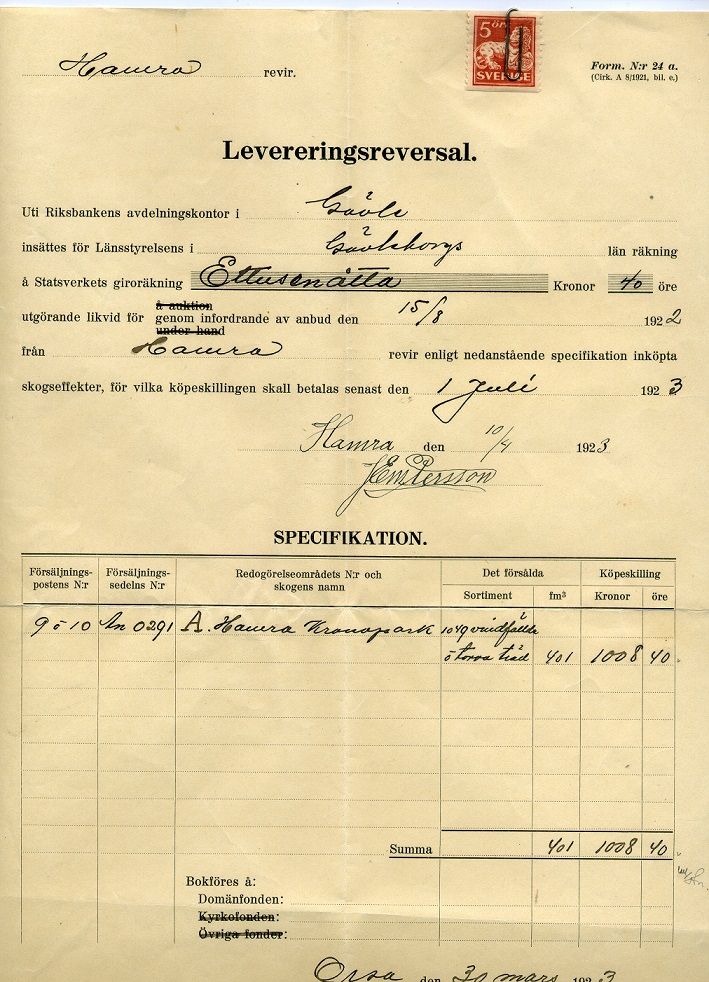 5 öre
SVERIGE
Hamra revir.
Form. N:r 24 a.
(Cirk. A 8/1921, bil. e.)
Levereringsreversal.
Uti Riksbankens avdelningskontor i Gävle
insättes för Länsstyrelsens i Gävleborgs län räkning
å Statsverkets giroräkning Ettusenåtta Kronor 40 öre
å auktion
utgörande likvid för genom infordrande av anbud den 15/8 1922
under hand
från Hamra revir enligt nedanstående specifikation inköpta
skogseffekter, för vilka köpeskillingen skall betalas senast den 1 Juli 1923
Hamra den 10/4 1923
J Em Persson
SPECIFIKATION.
Försäljnings-postens N:r Försäljnings-sedelns N:r Redogörelseområdets N:r och skogens namn Det försålda Köpeskilling
Sortiment fm³ Kronor öre
9 o 10 An 0291 A. Hamra Kronopark 1049 vindfällda
o torra träd 401 1008 40
Summa 401 1008 40
Bokföres å:
Domänfonden:
Kyrkofonden:
Övriga fonder:
Orsa den 30 mars 1923